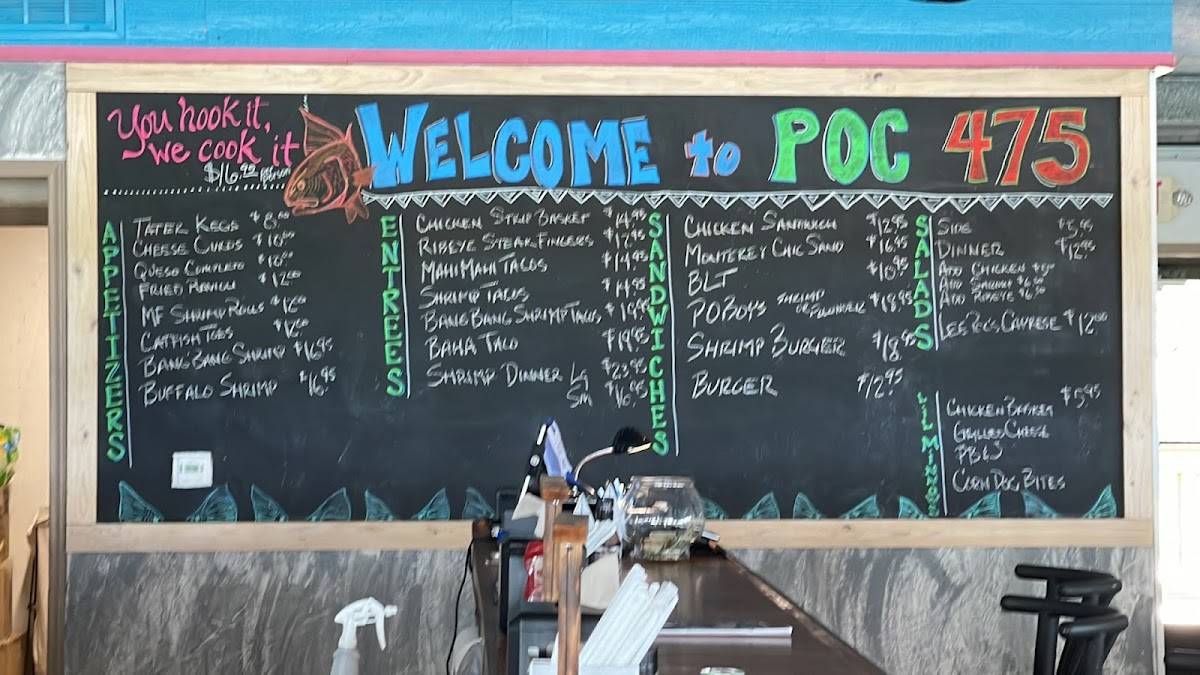 You hook it,
we cook it
$16.00 per person
WELCOME to POC 475
APPETIZERS
TATER KEGS $8.00
CHEESE CURDS $10.00
QUESO COMPLETO $10.00
FRIED RAVIOLI $12.00
MF SHRIMP ROLLS $12.00
CATFISH TOES $12.00
BANG BANG SHRIMP $16.95
BUFFALO SHRIMP $16.95
ENTREES
CHICKEN STRIP BASKET $14.95
RIBEYE STEAK FINGERS $12.95
MAHI MAHI TACOS $14.95
SHRIMP TACOS $14.95
BANG BANG SHRIMP TACOS $19.95
BAHA TACO $19.95
SHRIMP DINNER Lg $23.95
Sm $16.95
SANDWICHES
CHICKEN SANDWICH $12.95
MONTEREY CHIC SAND $16.95
BLT $10.95
PO BOYS SHRIMP OR FLOUNDER $18.95
SHRIMP BURGER $18.95
BURGER $12.95
SALADS
SIDE $5.95
DINNER $12.95
ADD CHICKEN
ADD SHRIMP $6.00
ADD RIBEYE $6.50
CAPRESE $12.00
LIL MINNOWS
CHICKEN BASKET $5.95
GRILLED CHEESE
PB&J
CORN DOG BITES